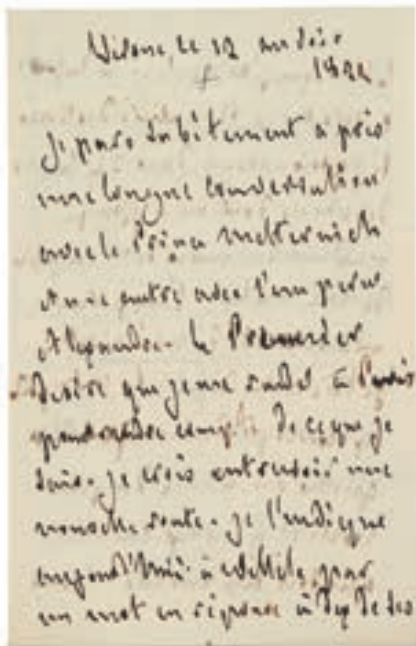 Vérone, le 12 au soir
1822
Je pars subitement après
une longue conversation
avec le Prince Metternich
et une autre avec l'empereur
Alexandre. le Premier
désire que je me rende à Paris
pour rendre compte de ce que je
sais. je crois entrevoir une
nouvelle route. je l'indique
aujourd'hui à Villèle, par
un mot en réponse à de ses